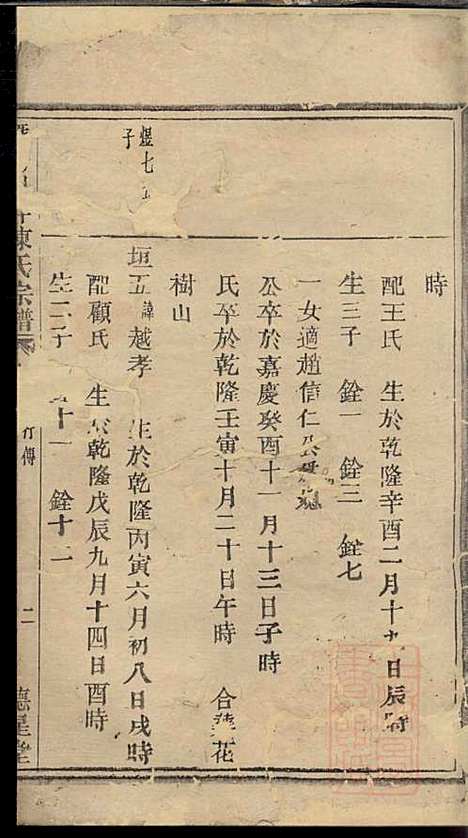 時
配王氏 生於乾隆辛酉二月十九日辰時
生三子 銓一 銓三 銓七
一女適趙信仁
公卒於嘉慶癸酉十一月十三日子時
氏卒於乾隆壬寅十月二十日午時 合葬花
樹山
煜七五子
垣五 諱越孝 生於乾隆丙寅六月初八日戌時
配顧氏 生於乾隆戊辰九月十四日酉時
生二子 十一 銓十二
陳氏宗譜 傳 二 德星堂